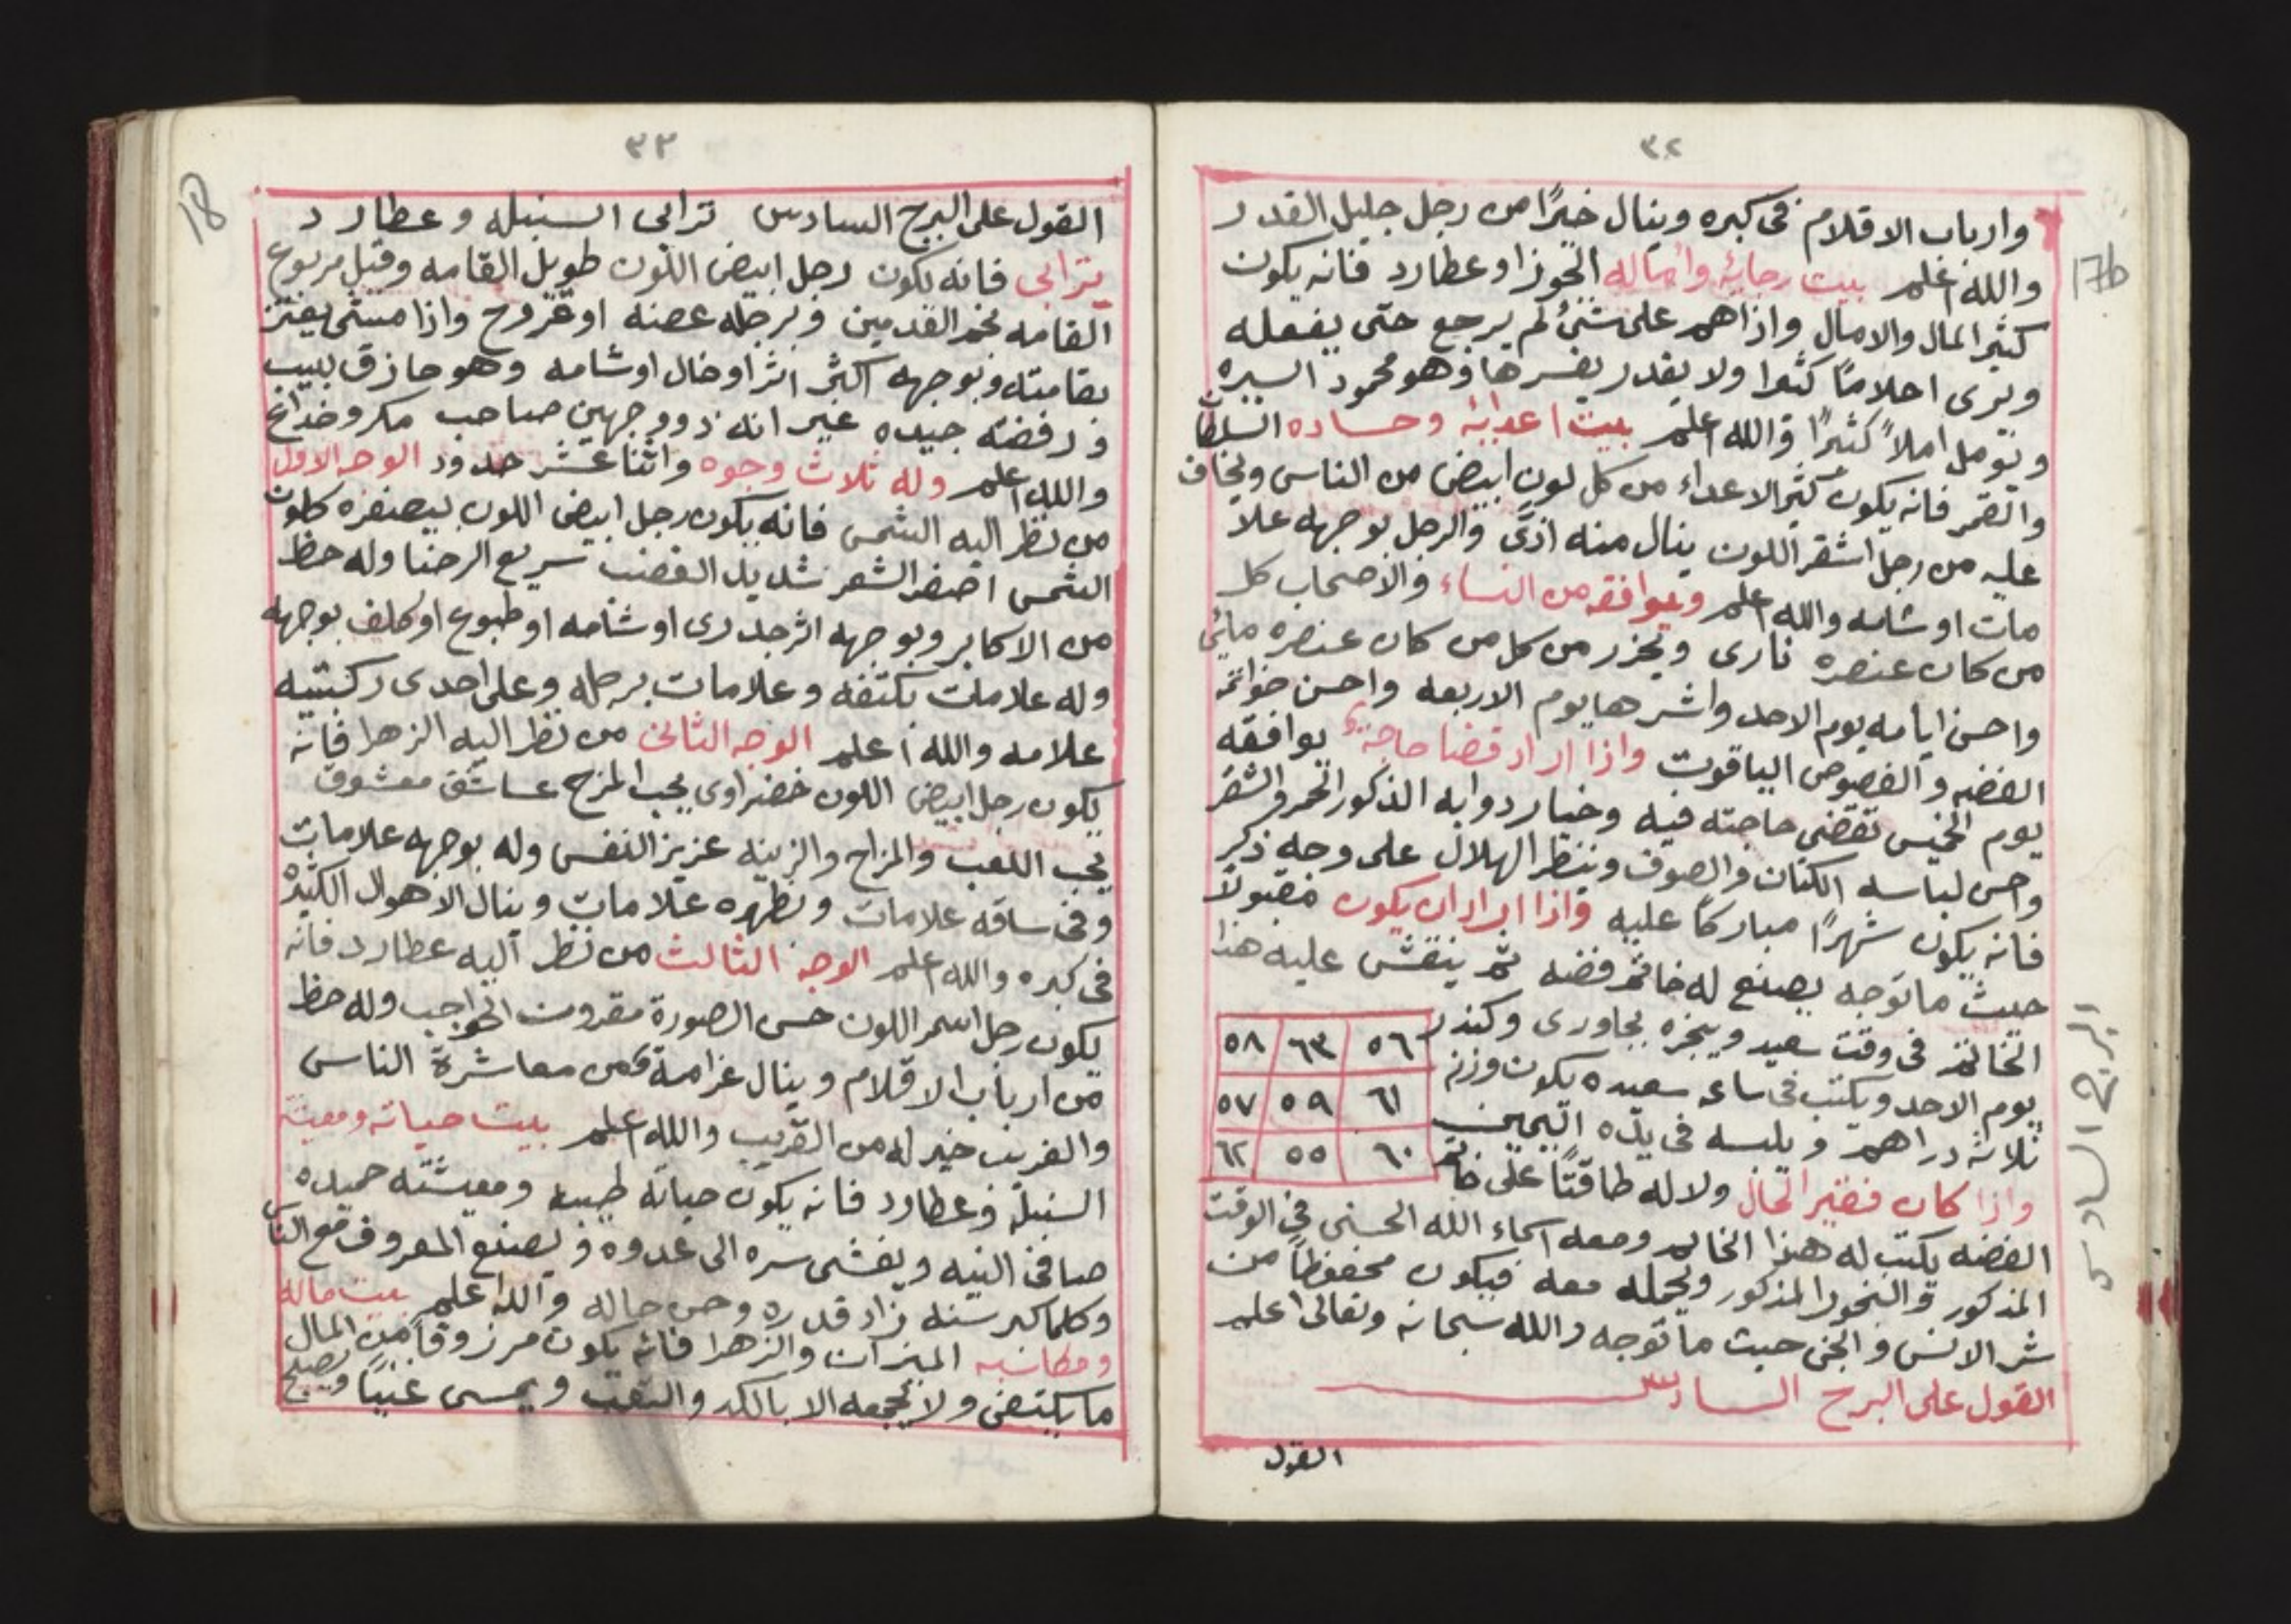 ٣٢
17b
وارباب الاقلام فى كبره وينال خيرًا من رجل جليل القدر
والله اعلم بيت رجائه وأماله الجوزا وعطارد فانه يكون
كثير المال والامال واذاهم على شىُ لم يرجع حتى يفعله
ويرى احلامًا كثيرا ولا يقدر يفسرها وهو محمود السيره
ويؤمل املاً كثيرًا والله اعلم بيت اعدايه وحساده السلطا
والقمر فانه يكون كثير الاعداء من كل لون ابيض من الناس ويخاف
عليه من رجل اشقر اللون ينال منه اذىً والرجل بوجهه علا
مات اوشامه والله اعلم ويوافقه من النساء والاصحاب كل
من كان عنصره نارى ويحزر من كل من كان عنصره مائى
واحسن ايامه يوم الاحد واشرها يوم الاربعه واحسن خواتمه
الفضه والفصوص الياقوت واذا اراد قضا حاجة يوافقه
يوم الخميس تقضى حاجته فيه وخيار دوابه الذكور الحمر والشقر
واحسن لباسه الكتان والصوف وينظر الهلال على وجه ذكر
فانه يكون شهرًا مباركًا عليه واذا اراد ان يكون مقبولاً
حيث ما توجه يصنع له خاتم فضه ثم ينقش عليه هذا
الخاتم فى وقت سعيد ويبخره بجاورى وكندر
يوم الاحد ويكتب فى ساعه سعيده يكون وزنه
ثلاثه دراهم ويلبسه فى يده اليمين
٥٦ ٦٣ ٥٨
٦١ ٥٩ ٥٧
٦٠ ٥٥ ٦٢
واذا كان فقير الحال ولا له طاقتًا على خاتم
الفضه يكتب له هذا الخاتم ومعه اسماء الله الحسنى فى الوقت
المذكور والبخور المذكور ويحمله معه فيكون محفوظاً من
شر الانس والجن حيث ما توجه والله سبحانه وتعالى اعلم
القول على البرج السادس
القول
البرج السادس
٣٣
18
القول على البرج السادس ترابى السنبله وعطارد
ترابى فانه يكون رجل ابيض اللون طويل القامه وقيل مربوع
القامه لحم القدمين وبرجله عضه او قروح واذا مشى يهتز
بقامته وبوجهه اكثر اثر او خال اوشامه وهو حازق لبيب
ورفضته جيده غير انه ذووجهين صاحب مكر وخداع
والله اعلم وله ثلاث وجوه واثنا عشر حدود الوجه الاول
من نظر اليه الشمس فانه يكون رجل ابيض اللون بيصنفره كلون
الشمس اصفر الشعر شديد الغضب سريع الرضا وله حظ
من الاكابر وبوجهه اثر جدرى اوشامه او طبوع او كلف بوجهه
وله علامات بكتفه وعلامات برجله وعلى احدى ركبتيه
علامه والله اعلم الوجه الثانى من نظر اليه الزهرا فانه
يكون رجل ابيض اللون خضراوى يحب المزح عاشق معشوق
يحب اللعب والمزاح والزينه عزيز النفس وله بوجهه علامات
وفى ساقه علامات وبظهره علامات وينال الاهوال الكثيره
فى كبره والله اعلم الوجه الثالث من نظر اليه عطارد فانه
يكون رجل اسمر اللون حسن الصورة مقرون الحواجب وله حظ
من ارباب الاقلام وينال غرامة من معاشرة الناس
والغريب خير له من القريب والله اعلم بيت حياته ومعيشته
السنبله وعطارد فانه يكون حياته طيبه ومعيشته حميده
صافى النيه ويفشى سره الى عدوه ويصنع المعروف مع الناس
وكلما كبر سنه زاد قدره وحسن حاله والله اعلم بيت ماله
ومكاسبه الميزان والزهرا فانه يكون مرزوقًا من المال
ما يكتفى ولا يجمعه الا بالكد والتعب ويمسى غنيًا ويصبح